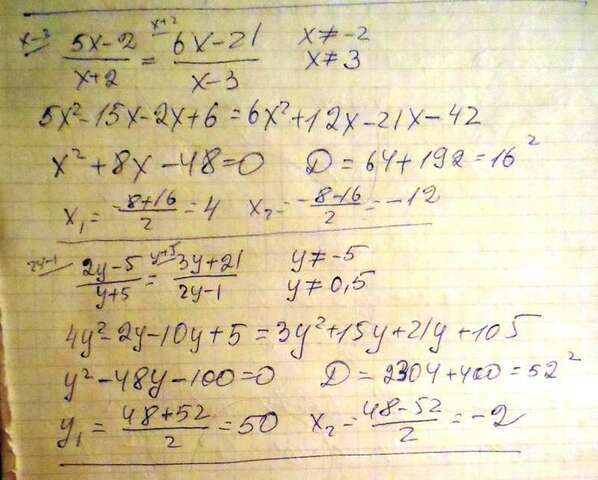 x-3 (5x-2)/(x+2) = x+2 (6x-21)/(x-3) x≠-2
x≠3
5x²-15x-2x+6=6x²+12x-21x-42
x²+8x-48=0 D=64+192=16²
x₁=(-8+16)/2=4 x₂=(-8-16)/2=-12
2y-1 (2y-5)/(y+5) = y+5 (3y+21)/(2y-1) y≠-5
y≠0,5
4y²-2y-10y+5=3y²+15y+21y+105
y²-48y-100=0 D=2304+400=52²
y₁=(48+52)/2=50 x₂=(48-52)/2=-2